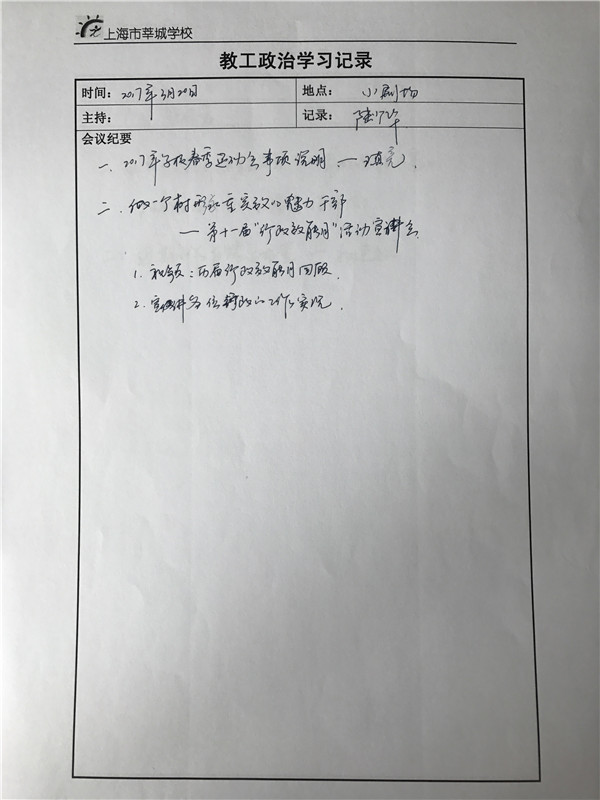 上海市莘城学校
教工政治学习记录
时间: 2017年3月20日 地点: 小剧场
主持: 记录: 陆
会议纪要
一、2017年学校春季运动会事项说明 —
二、做一个树形象重实效的魅力干部
— 第十一届"行政效能月"活动宣讲会
1. : 历届行政效能月回顾.
2. 宣讲各位行政的工作实况.